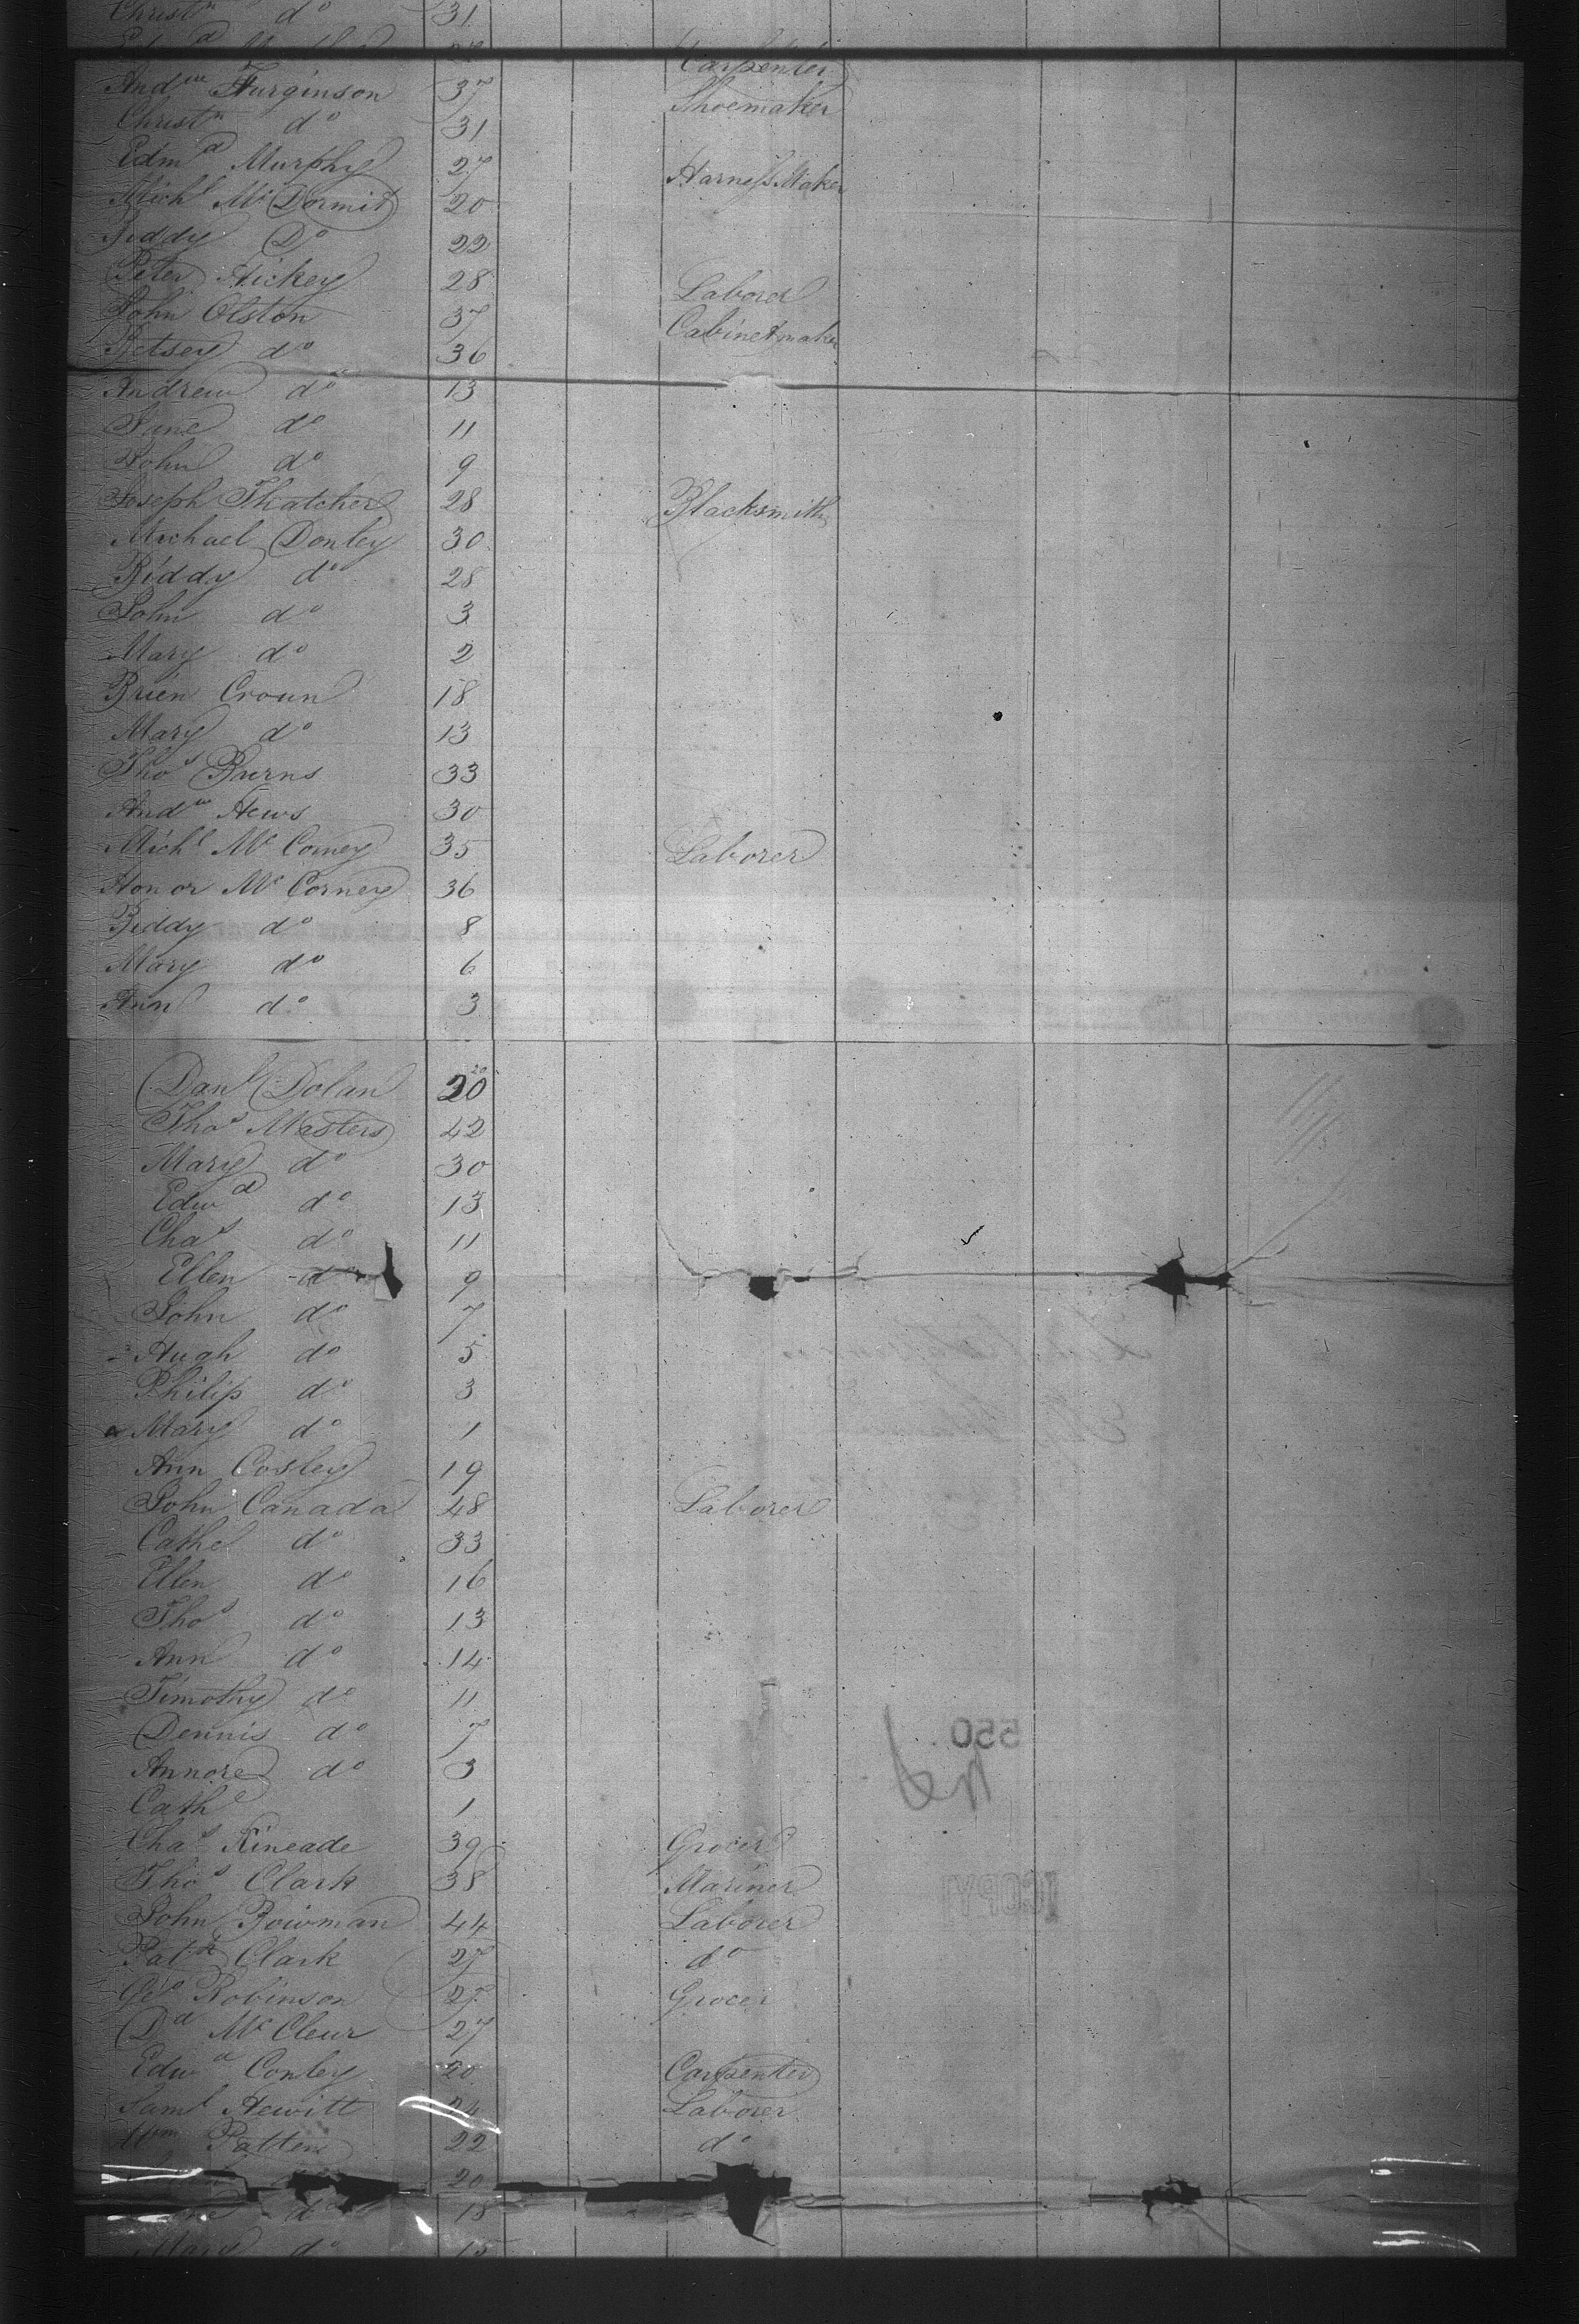 Christn do 31
Carpenter
Andw Furginson 37 Shoemaker
Christn do 31
Edmd Murphy 27
Harness Maker
Michl McDormit 20
Biddy Do 22
Peter Hickey 28 Laborer
John Olston 37 Cabinetmaker
Betsey do 36
Andrew do 13
Jane do 11
John do 9
Joseph Thatcher 28 Blacksmith
Michael Donley 30
Biddy do 28
John do 3
Mary do 2
Brien Croun 18
Mary do 13
Thos Burns 33
Andw Hews 30
Michl Mc Comey 35 Laborer
Honor Mc Corney 36
Biddy do 8
Mary do 6
Ann do 3
Danl Dolan 20
Thos Masters 42
Mary do 30
Edwd do 13
Chas do 11
Ellen do 9
John do 7
Hugh do 5
Philip do 3
Mary do 1
Ann Cosley 19
John Canada 48 Laborer
Cathe do 33
Ellen do 16
Thos do 13
Ann do 14
Timothy do 11
Dennis do 7
550
Annore do 3
Cathe 1
Chas Kineade 39 Grocer
Thos Clark 38 Mariner
John Bowman 44 Laborer
Patk Clark 27 do
Geo Robinson 27 Grocer
Dd Mc Cleur 27
Edwd Conley 20 Carpenter
Saml Hewitt 24 Laborer
Wm Patten 22 do
20
do 18
Mary do 15